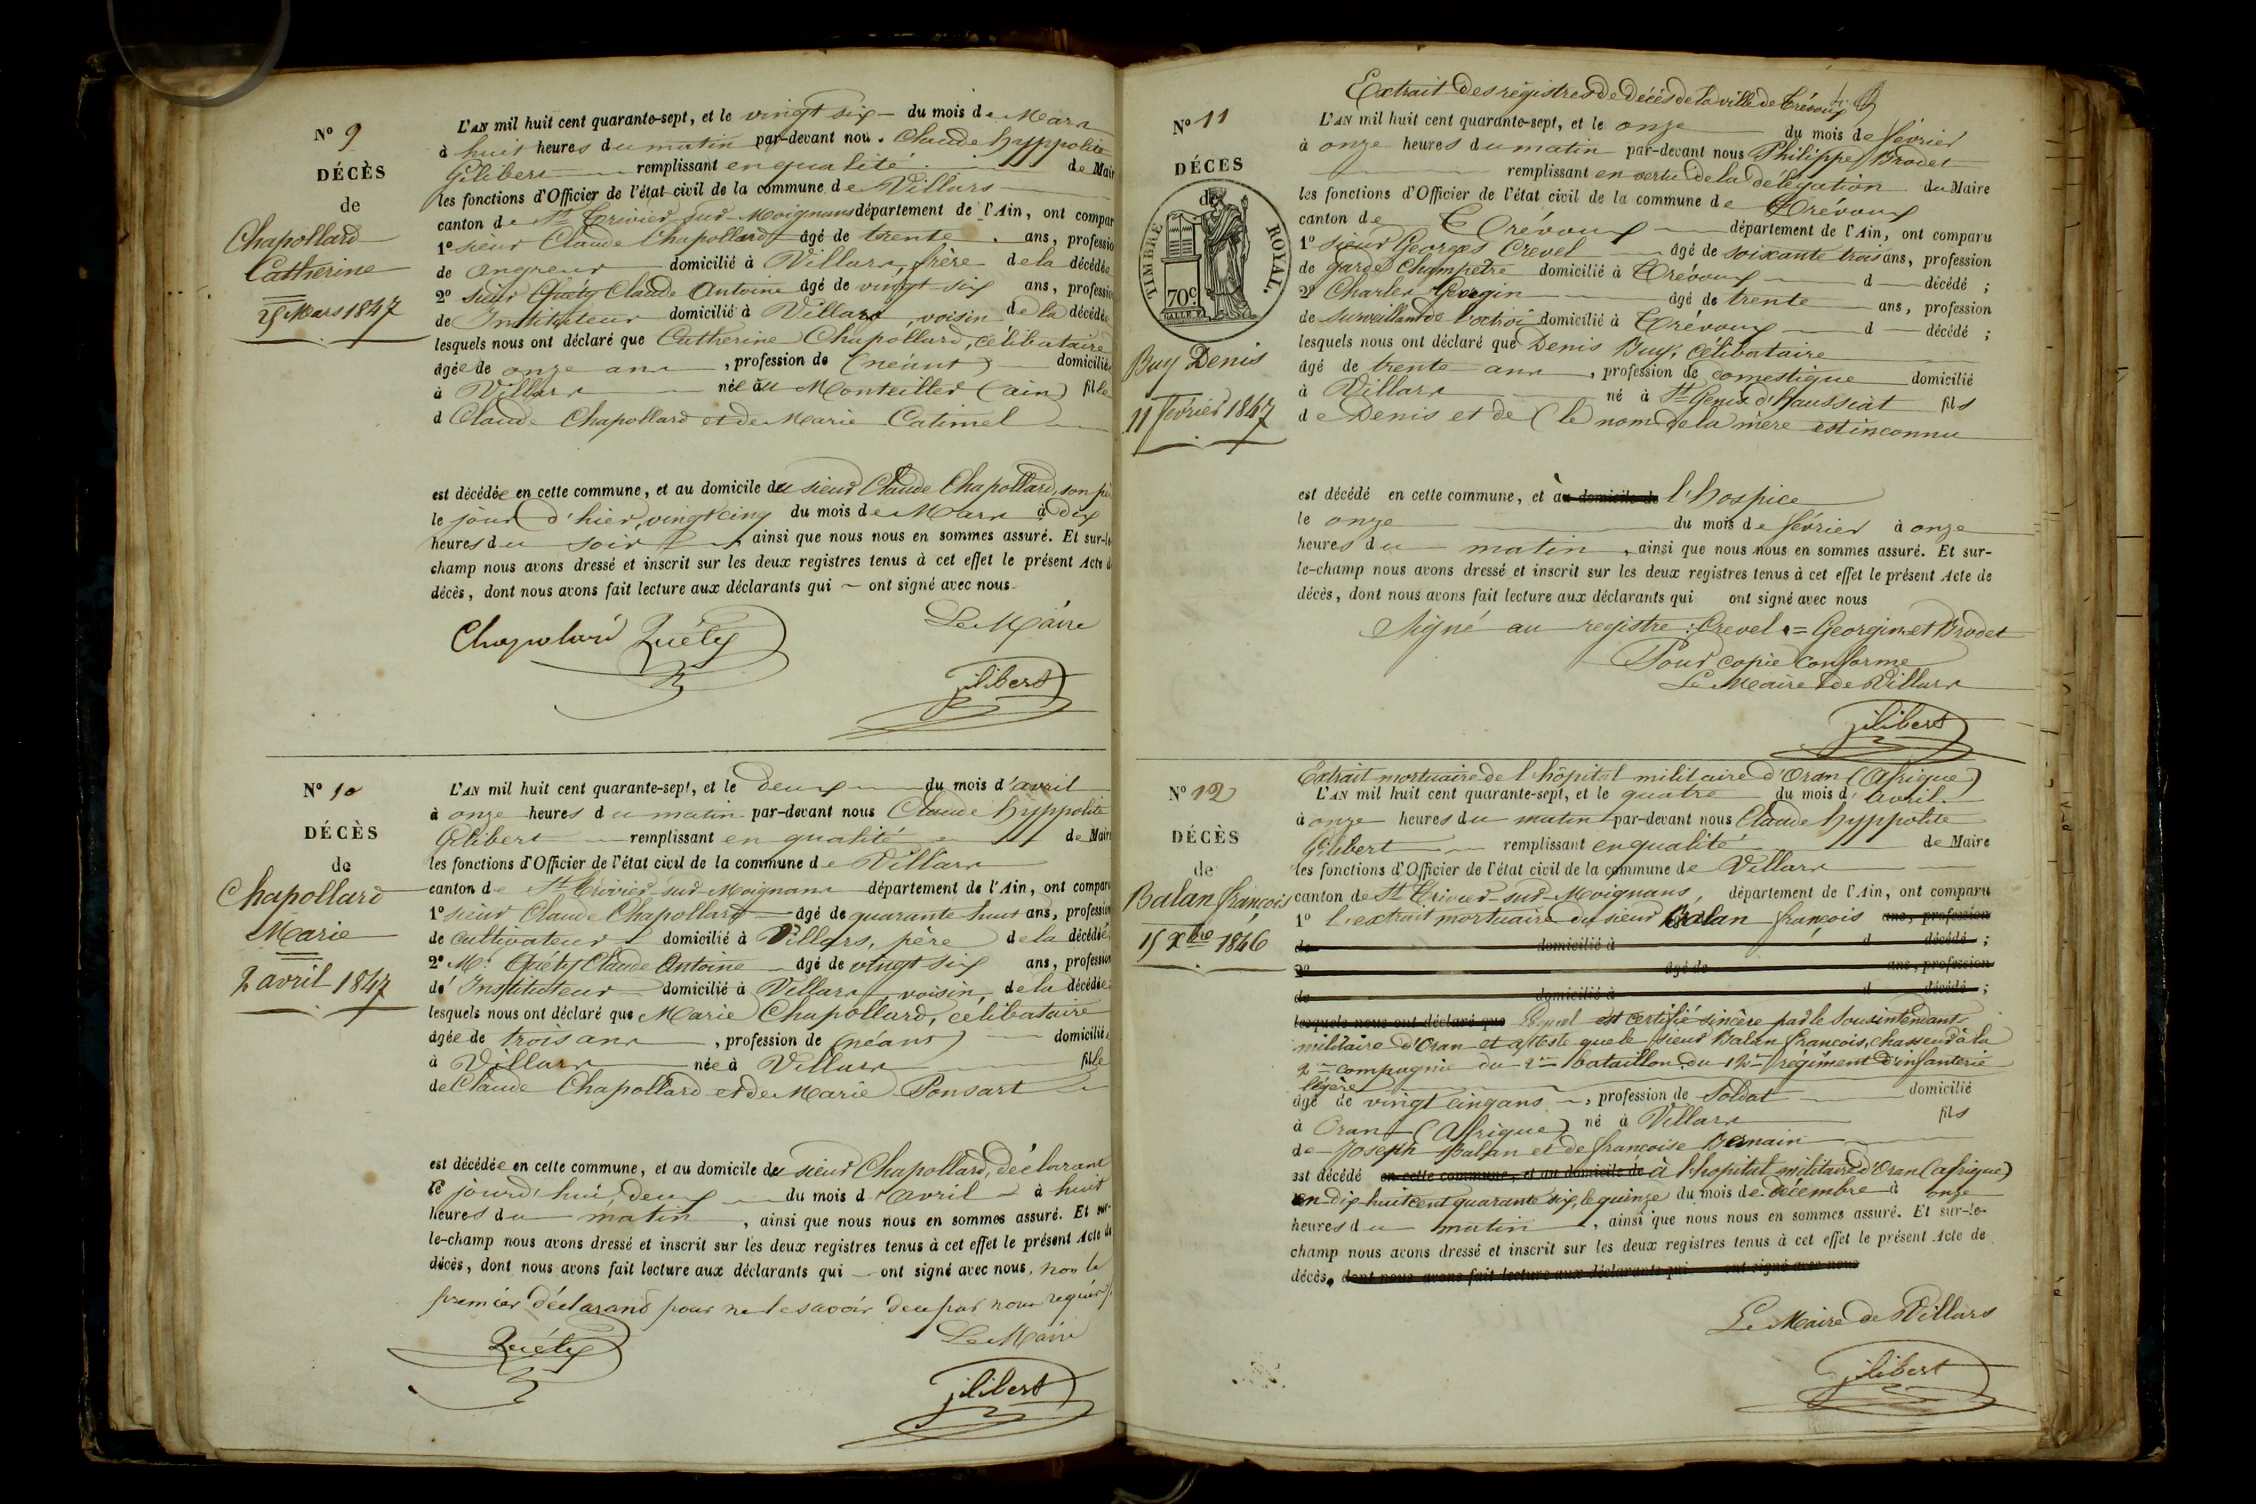 N° 9
DÉCÈS
de
Chapollard
Catherine
25 Mars 1847
L'AN mil huit cent quarante-sept, et le vingt six du mois de Mars
à huit heures du matin par-devant nou. Claude hyppolite
Gilibert remplissant en qualité de Mair
les fonctions d'Officier de l'état civil de la commune de Villars
canton de St Trivier-sur-Moignans département de l'Ain, ont compar
1° sieur Claude Chapollard âgé de trente ans, professio
de domicilié à Villars, frère de la décédée
2° sieur Quéty Claude Antoine âgé de vingt six ans, professio
de Instituteur domicilié à Villars, voisin de la décédée
lesquels nous ont déclaré que Catherine Chapollard, célibataire
âgée de onze ans, profession de (néant) domiciliée
à Villars née au Montellier (ain) fille
d Claude Chapollard et de Marie Catimel
est décédée en cette commune, et au domicile du sieur Claude Chapollard, son pè
le jour d'hier, vingt cinq du mois de Mars à dix
heures du soir, ainsi que nous nous en sommes assuré. Et sur-le
champ nous avons dressé et inscrit sur les deux registres tenus à cet effet le présent Acte d
décès, dont nous avons fait lecture aux déclarants qui ont signé avec nous
Le Maire
Chapolard Quéty
Gilibert
N° 10
DÉCÈS
de
Chapollard
Marie
2 avril 1847
L'AN mil huit cent quarante-sept, et le deux du mois d'avril
à onze heures du matin par-devant nous Claude hyppolite
Gilibert remplissant en qualité de Maire
les fonctions d'Officier de l'état civil de la commune de Villars
canton de St Trivier-sur-Moignans département de l'Ain, ont comparu
1° sieur Claude Chapollard âgé de quarante huit ans, profession
de cultivateur domicilié à Villars, père de la décédée
2° Mr Quéty Claude Antoine âgé de vingt six ans, profession
de Instituteur domicilié à Villars voisin de la décédée
lesquels nous ont déclaré que Marie Chapollard, célibataire
âgée de trois ans, profession de (néant) domiciliée
à Villars née à Villars fille
de Claude Chapollard et de Marie Ponsart
est décédée en cette commune, et au domicile du sieur Chapollard, déclarant
ce jourd'hui, deux du mois d'avril à huit
heures du matin, ainsi que nous nous en sommes assuré. Et sur-
le-champ nous avons dressé et inscrit sur les deux registres tenus à cet effet le présent Acte de
décès, dont nous avons fait lecture aux déclarants qui ont signé avec nous, non le
premier déclarant pour ne le savoir de ce par nous requis
Le Maire
Quéty
Gilibert
Extrait des registres de décès de la ville de Trévoux
N° 11
DÉCÈS
de
TIMBRE ROYAL.
70c
Buy Denis
11 février 1847
L'AN mil huit cent quarante-sept, et le onze du mois de février
à onze heures du matin par-devant nous Philippe Brodet
remplissant en vertu de la délégation du Maire
les fonctions d'Officier de l'état civil de la commune de Trévoux
canton de Trévoux département de l'Ain, ont comparu
1° sieur Georges Crevel âgé de soixante trois ans, profession
de garde Champêtre domicilié à Trévoux d décédé ;
2° Charles Georgin âgé de trente ans, profession
de surveillant de l'octroi domicilié à Trévoux d décédé ;
lesquels nous ont déclaré que Denis Buy, célibataire
âgé de trente ans, profession de domestique domicilié
à Villars né à St Genis d'haussiat fils
de Denis et de (le nom de la mère est inconnu
est décédé en cette commune, et au domicile de l'hospice
le onze du mois de février à onze
heures du matin, ainsi que nous nous en sommes assuré. Et sur-
le-champ nous avons dressé et inscrit sur les deux registres tenus à cet effet le présent Acte de
décès, dont nous avons fait lecture aux déclarants qui ont signé avec nous
Signé au registre : Crevel = Georgin et Brodet
Pour copie conforme
Le Maire de Villars
Gilibert
Extrait mortuaire de l'hôpital militaire d'Oran (Afrique)
N° 12
DÉCÈS
de
Balan françois
15 Xbre 1846
L'AN mil huit cent quarante-sept, et le quatre du mois d'avril
à onze heures du matin par-devant nous Claude hyppolite
Gilibert remplissant en qualité de Maire
les fonctions d'Officier de l'état civil de la commune de Villars
canton de St Trivier-sur-Moignans, département de l'Ain, ont comparu
1° l'extrait mortuaire du sieur Balan françois ans, profession
de domicilié à d décédé ;
2° âgé de ans, profession
de domicilié à d décédé ;
lesquels nous ont déclaré que Lequel est certifié sincère par le Sous intendant
militaire d'Oran et atteste que le sieur Balan françois, chasseur à la
2me compagnie du 2me bataillon du 12me régiment d'infanterie
légère
âgé de vingt cinq ans, profession de Soldat domicilié
à Oran (Afrique) né à Villars fils
de Joseph Balan et de françoise Bernain
est décédé en cette commune, et au domicile de à l'hopital militaire d'Oran (afrique)
en dix huit cent quarante six, le quinze du mois de décembre à onze
heures du matin, ainsi que nous nous en sommes assuré. Et sur-le-
champ nous avons dressé et inscrit sur les deux registres tenus à cet effet le présent Acte de
décès, dont nous avons fait lecture aux déclarants qui ont signé avec nous
Le Maire de Villars
Gilibert